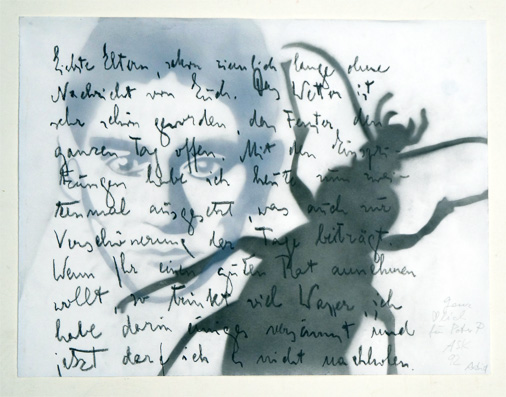 Liebste Eltern, schon ziemlich lange ohne
Nachricht von Euch. Das Wetter ist
sehr schön geworden, das Fenster den
ganzen Tag offen. Mit den Einspri-
tzungen habe ich heute zum zwei-
tenmal ausgesetzt, was auch zur
Verschönerung der Tage beiträgt.
Wenn Ihr einen guten Rat annehmen
wollt, so trinkt viel Wasser, ich
habe darin einiges versäumt und
jetzt darf ich es nicht nachholen.
für Peter P
92